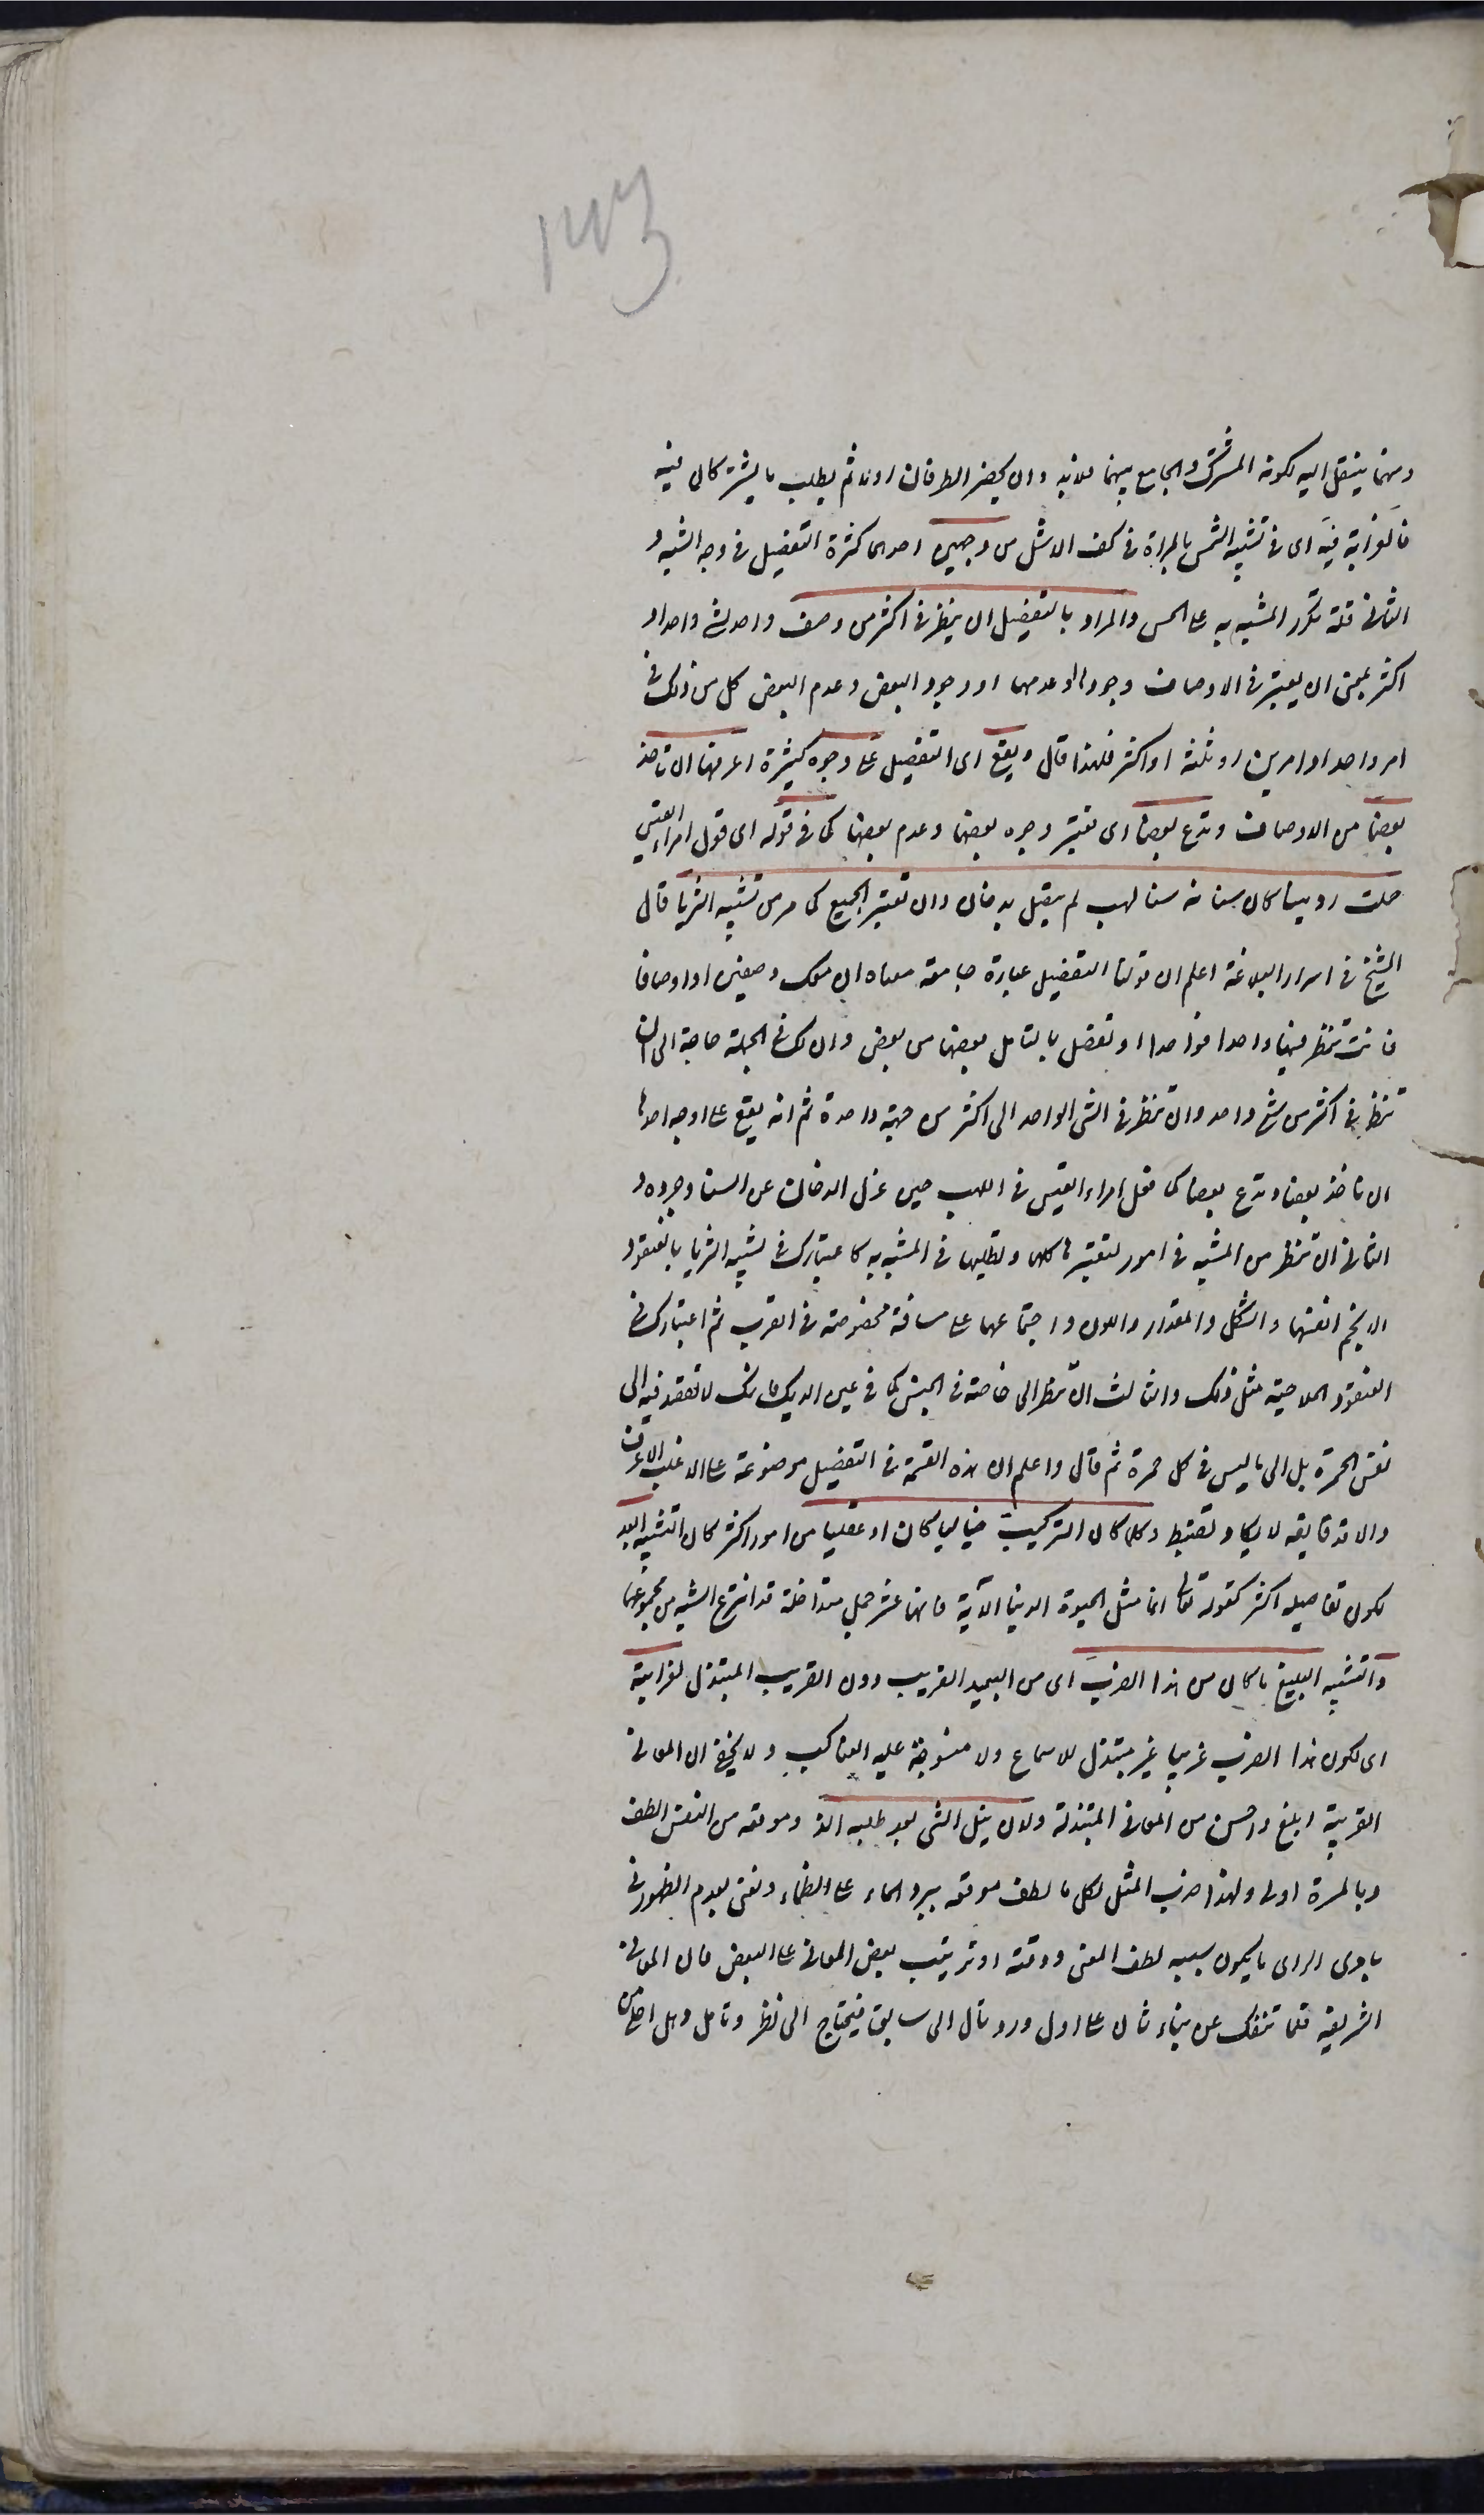 143
ومنهما ينتقل اليه لكونه المشترك والجامع بينهما فلابد وان يحضر الطرفان اولا ثم يطلب ما يشتركان فيه
فالغرابة فيه اى فى تشبيه الشمس بالمرآة فى كف الاشل من وجهين احدهما كثرة التفصيل فى وجه الشبه و
الثانى قلة تكرر المشبه به على الحس والمراد بالتفصيل ان ينظر فى اكثر من وصف واحد لشئ واحد او
اكثر بمعنى ان يعتبر فى الاوصاف وجودها او عدمها او وجود البعض وعدم البعض كل من ذلك فى
امر واحد او امرين او ثلثة او اكثر فلهذا قال ويقع اى التفصيل على وجوه كثيرة اعرفها ان تاخذ
بعضا من الاوصاف وتدع بعضا اى تعتبر وجود بعضها وعدم بعضها كما فى قوله اى قول امراء القيس
حملت ردينيا كان سنانه سنا لهب لم يتصل بدخان وان تعتبر الجميع كما مر من تشبيه الثريا قال
الشيخ فى اسرار البلاغة اعلم ان قولنا التفصيل عبارة جامعة معناه ان معك وصفين او اوصافا
فانت تنظر فيها واحدا فواحدا وتفصل بالتامل بعضها من بعض وان لك فى الجملة حاجة الى ان
تنظر فى اكثر من شئ واحد وان تنظر فى الشئ الواحد الى اكثر من جهة واحدة ثم انه يقع على اوجه احدها
ان تاخذ بعضا وتدع بعضا كما فعل امراء القيس فى اللهب حين عزل الدخان عن السنا وجرده و
الثانى ان تنظر من المشبه فى امور لتعتبرها كلها وتطلبها فى المشبه به كاعتبارك فى تشبيه الثريا بالعنقود
الانجم انفسها والشكل والمقدار واللون واجتماعها على مسافة مخصوصة فى القرب ثم اعتبارك فى
العنقود الملاحية مثل ذلك والثالث ان تنظر الى خاصة فى الجنس كما فى عين الديك فانك لا تقصد فيه الى
نفس الحمرة بل الى ما ليس فى كل حمرة ثم قال واعلم ان هذه القسمة فى التفصيل موضوعة على الاغلب الاعرف
والا فدقايقه لا يكاد تضبط وكلما كان التركيب خياليا كان او عقليا من امور اكثر كان التشبيه ابعد
لكون تفاصيله اكثر كقوله تعالى انما مثل الحيوة الدنيا الآية فانها عشر جمل متداخلة قد انتزع الشبه من مجموعها
والتشبيه البليغ ما كان من هذا الضرب اى من البعيد الغريب دون القريب المبتذل لغرابته
اى لكون هذا الضرب غريبا غير مبتذل للاسماع ولا منسوجة عليه العناكب ولا يخفى ان المعانى
الغريبة ابلغ واحسن من المعانى المبتذلة ولان نيل الشئ بعد طلبه الذ وموقعه من النفس الطف
وبالمسرة اولى ولهذا ضرب المثل لكل ما لطف موقعه ببرد الماء على الظماء ونعنى بعدم الظهور فى
بادى الراى ما يكون سببه لطف المعنى ودقته او ترتيب بعض المعانى على البعض فان المعانى
الشريفة قلما تنفك عن بناء ثان على اول ورد تال الى سابق فيحتاج الى نظر وتامل وهل احلى من